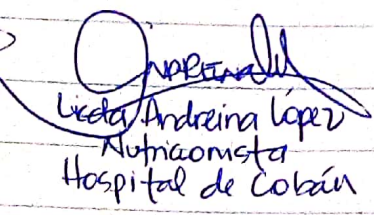 Licda Andreina López
Nutricionista
Hospital de Cobán